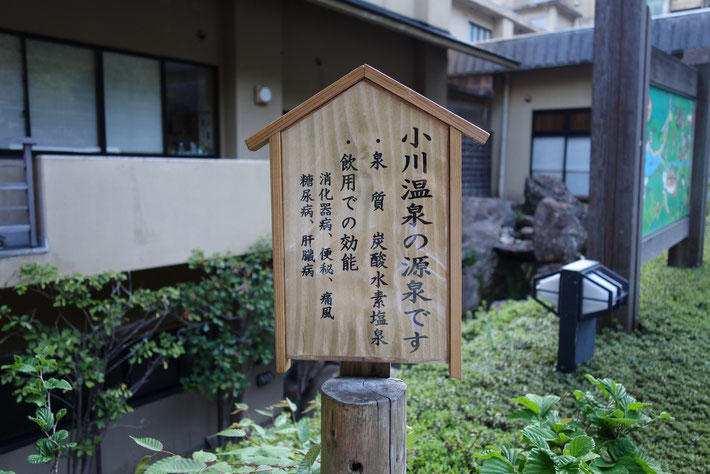 小川温泉の源泉です
・泉質 炭酸水素塩泉
・飲用での効能
消化器病、便秘、痛風
糖尿病、肝臓病